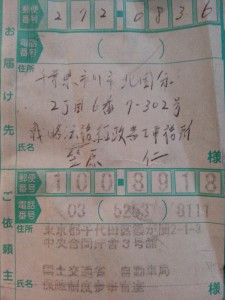 郵便番号 272-0836
電話番号
お届け先
住所
千葉県市川市北国分
2丁目6番7-302号
法務行政書士事務所
氏名
笠原 仁 様
ご依頼主
郵便番号 100-8918
電話番号 03 (5253) 8111
住所
東京都千代田区霞が関2-1-3
中央合同庁舎3号館
氏名
国土交通省 自動車局
保障制度参事官室
様